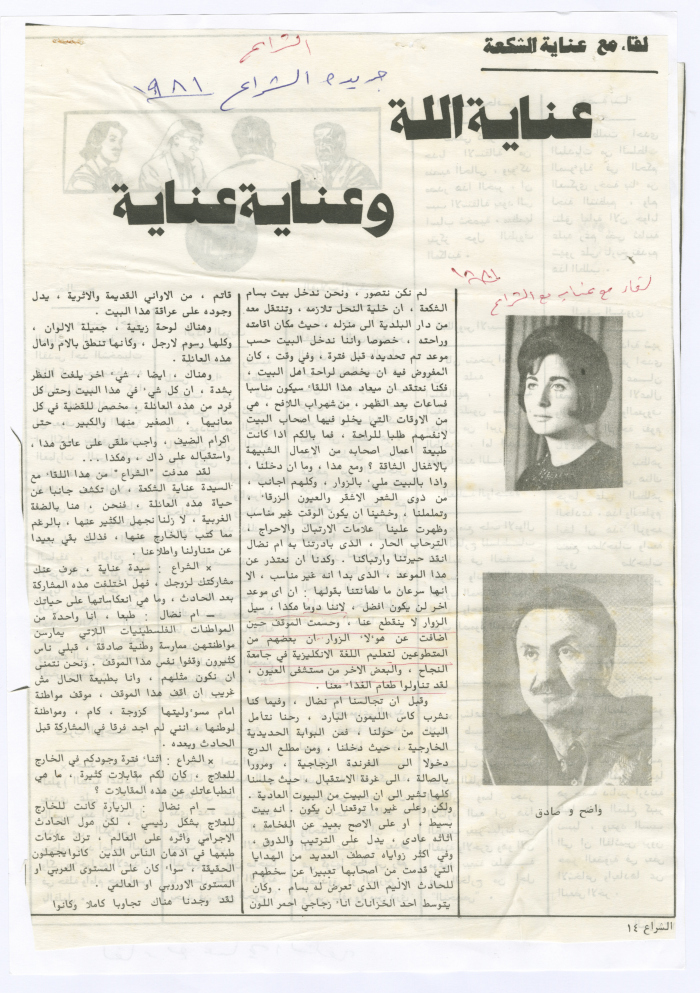 لقاء مع عناية الشكعة
الشراع
جريدة الشراع ١٩٨١
عناية اللة
وعناية عناية
١٩٨١
لقاء مع عناية مع الشراع
واضح و صادق
لم نكن نتصور ، ونحن ندخل بيت بسام
الشكعة ، ان خلية النحل تلازمه ، وتنتقل معه
من دار البلدية الى منزله ، حيث مكان اقامته
وراحته ، خصوصا واننا ندخل البيت حسب
موعد تم تحديده قبل فترة ، وفي وقت ، كان
المفروض فيه ان يخصص لراحة اهل البيت ،
فكنا نعتقد ان ميعاد هذا اللقاء سيكون مناسبا
فساعات بعد الظهر ، من شهراب اللافح ، هي
من الاوقات التي يخلو فيها اصحاب البيت
لانفسهم طلبا للراحة ، فما بالكم اذا كانت
طبيعة اعمال اصحابه من الاعمال الشبيهة
بالاشغال الشاقة ؟ ومع هذا ، وما ان دخلنا ،
واذا بالبيت ملىء بالزوار ، وكلهم اجانب ،
من ذوى الشعر الاشقر والعيون الزرقاء ،
وتململنا ، وخشينا ان يكون الوقت غير مناسب
وظهرت علينا علامات الارتباك والاحراج ،
الترحاب الحار ، الذى بادرتنا به ام نضال
انقذ حيرتنا وارتباكنا . وكدنا ان نعتذر عن
هذا الموعد ، الذى بدا انه غير مناسب ، الا
انها سرعان ما طمأنتنا بقولها : ان اى موعد
اخر لن يكون افضل ، لاننا دوما هكذا ، سيل
الزوار لا ينقطع عنا ، وحسمت الموقف حين
اضافت عن هولاء الزوار ان بعضهم من
المتطوعين لتعليم اللغة الانكليزية في جامعة
النجاح ، والبعض الاخر من مستشفى العيون ،
لقد تناولوا طعام الغذاء معنا .
وقبل ان تجالسنا ام نضال ، وفيما كنا
نشرب كاس الليمون البارد ، رحنا نتأمل
البيت من حولنا ، فمن البوابة الحديدية
الخارجية ، حيث دخلنا ، ومن مطلع الدرج
دخولا الى الفرندة الزجاجية ، ومرورا
بالصالة ، الى غرفة الاستقبال ، حيث جلسنا
كلها تشير الى ان البيت من البيوت العادية .
ولكن وعلى غير ما توقعنا ان يكون . انه بيت
بسيط ، او على الاصح بعيد عن الفخامة ،
اثاثه عادي ، يدل على الترتيب والذوق ،
وفي اكثر زواياه تصطف العديد من الهدايا
التي قدمت من اصحابها تعبيرا عن سخطهم
للحادث الاليم الذى تعرض له بسام . وكان
يتوسط احد الخزانات اناء زجاجي احمر اللون
قاتم ، من الاواني القديمة والاثرية ، يدل
وجوده على عراقة هذا البيت .
وهناك لوحة زيتية ، جميلة الالوان ،
وكلها رسوم لارجل ، وكأنها تنطق بالام وامال
هذه العائلة .
وهناك ، ايضا ، شيء اخر يلفت النظر
بشدة ، ان كل شيء في هذا البيت وحتى كل
فرد من هذه العائلة ، مخصص للقضية في كل
معانيها ، الصغير منها والكبير ، حتى
اكرام الضيف ، واجب ملقى على عاتق هذا ،
واستقباله على ذاك ، وهكذا ...
لقد هدفت "الشراع" من هذا اللقاء مع
السيدة عناية الشكعة ، ان تكشف جانبا عن
حياة هذه العائلة ، فنحن ، هنا بالضفة
الغربية ، لا زلنا نجهل الكثير عنها ، بالرغم
مما كتب بالخارج عنها ، فذلك بقي بعيدا
عن متناولنا واطلاعنا .
× الشراع : سيدة عناية ، عرف عنك
مشاركتك لزوجك ، فهل اختلفت هذه المشاركة
بعد الحادث ، وما هي انعكاساتها على حياتك
ــ ام نضال : طبعا ، انا واحدة من
المواطنات الفلسطينيات اللاتي يمارسن
مواطنتهن ممارسة وطنية صادقة ، قبلي ناس
كثيرون وقفوا نفس هذا الموقف . ونحن نتمنى
ان نكون مثلهم ، وانا بطبيعة الحال مش
غريب ان اقف هذا الموقف ، موقف مواطنة
امام مسوءوليتها كزوجة ، كام ، ومواطنة
لوطنها ، انني لم اجد فرقا في المشاركة قبل
الحادث وبعده .
× الشراع : اثناء فترة وجودكم في الخارج
للعلاج ، كان لكم مقابلات كثيرة ، ما هي
انطباعاتك عن هذه المقابلات ؟
ــ ام نضال : الزيارة كانت للخارج
للعلاج بشكل رئيسي ، لكن هول الحادث
الاجرامي واثره على العالم ، ترك علامات
طبعها في اذهان الناس الذين كانوايجهلون
الحقيقة ، سواء كان على المستوى العربي او
المستوى الاوروبي او العالمي .
لقد وجدنا هناك تجاوبا كاملا وكانوا
الشراع ١٤